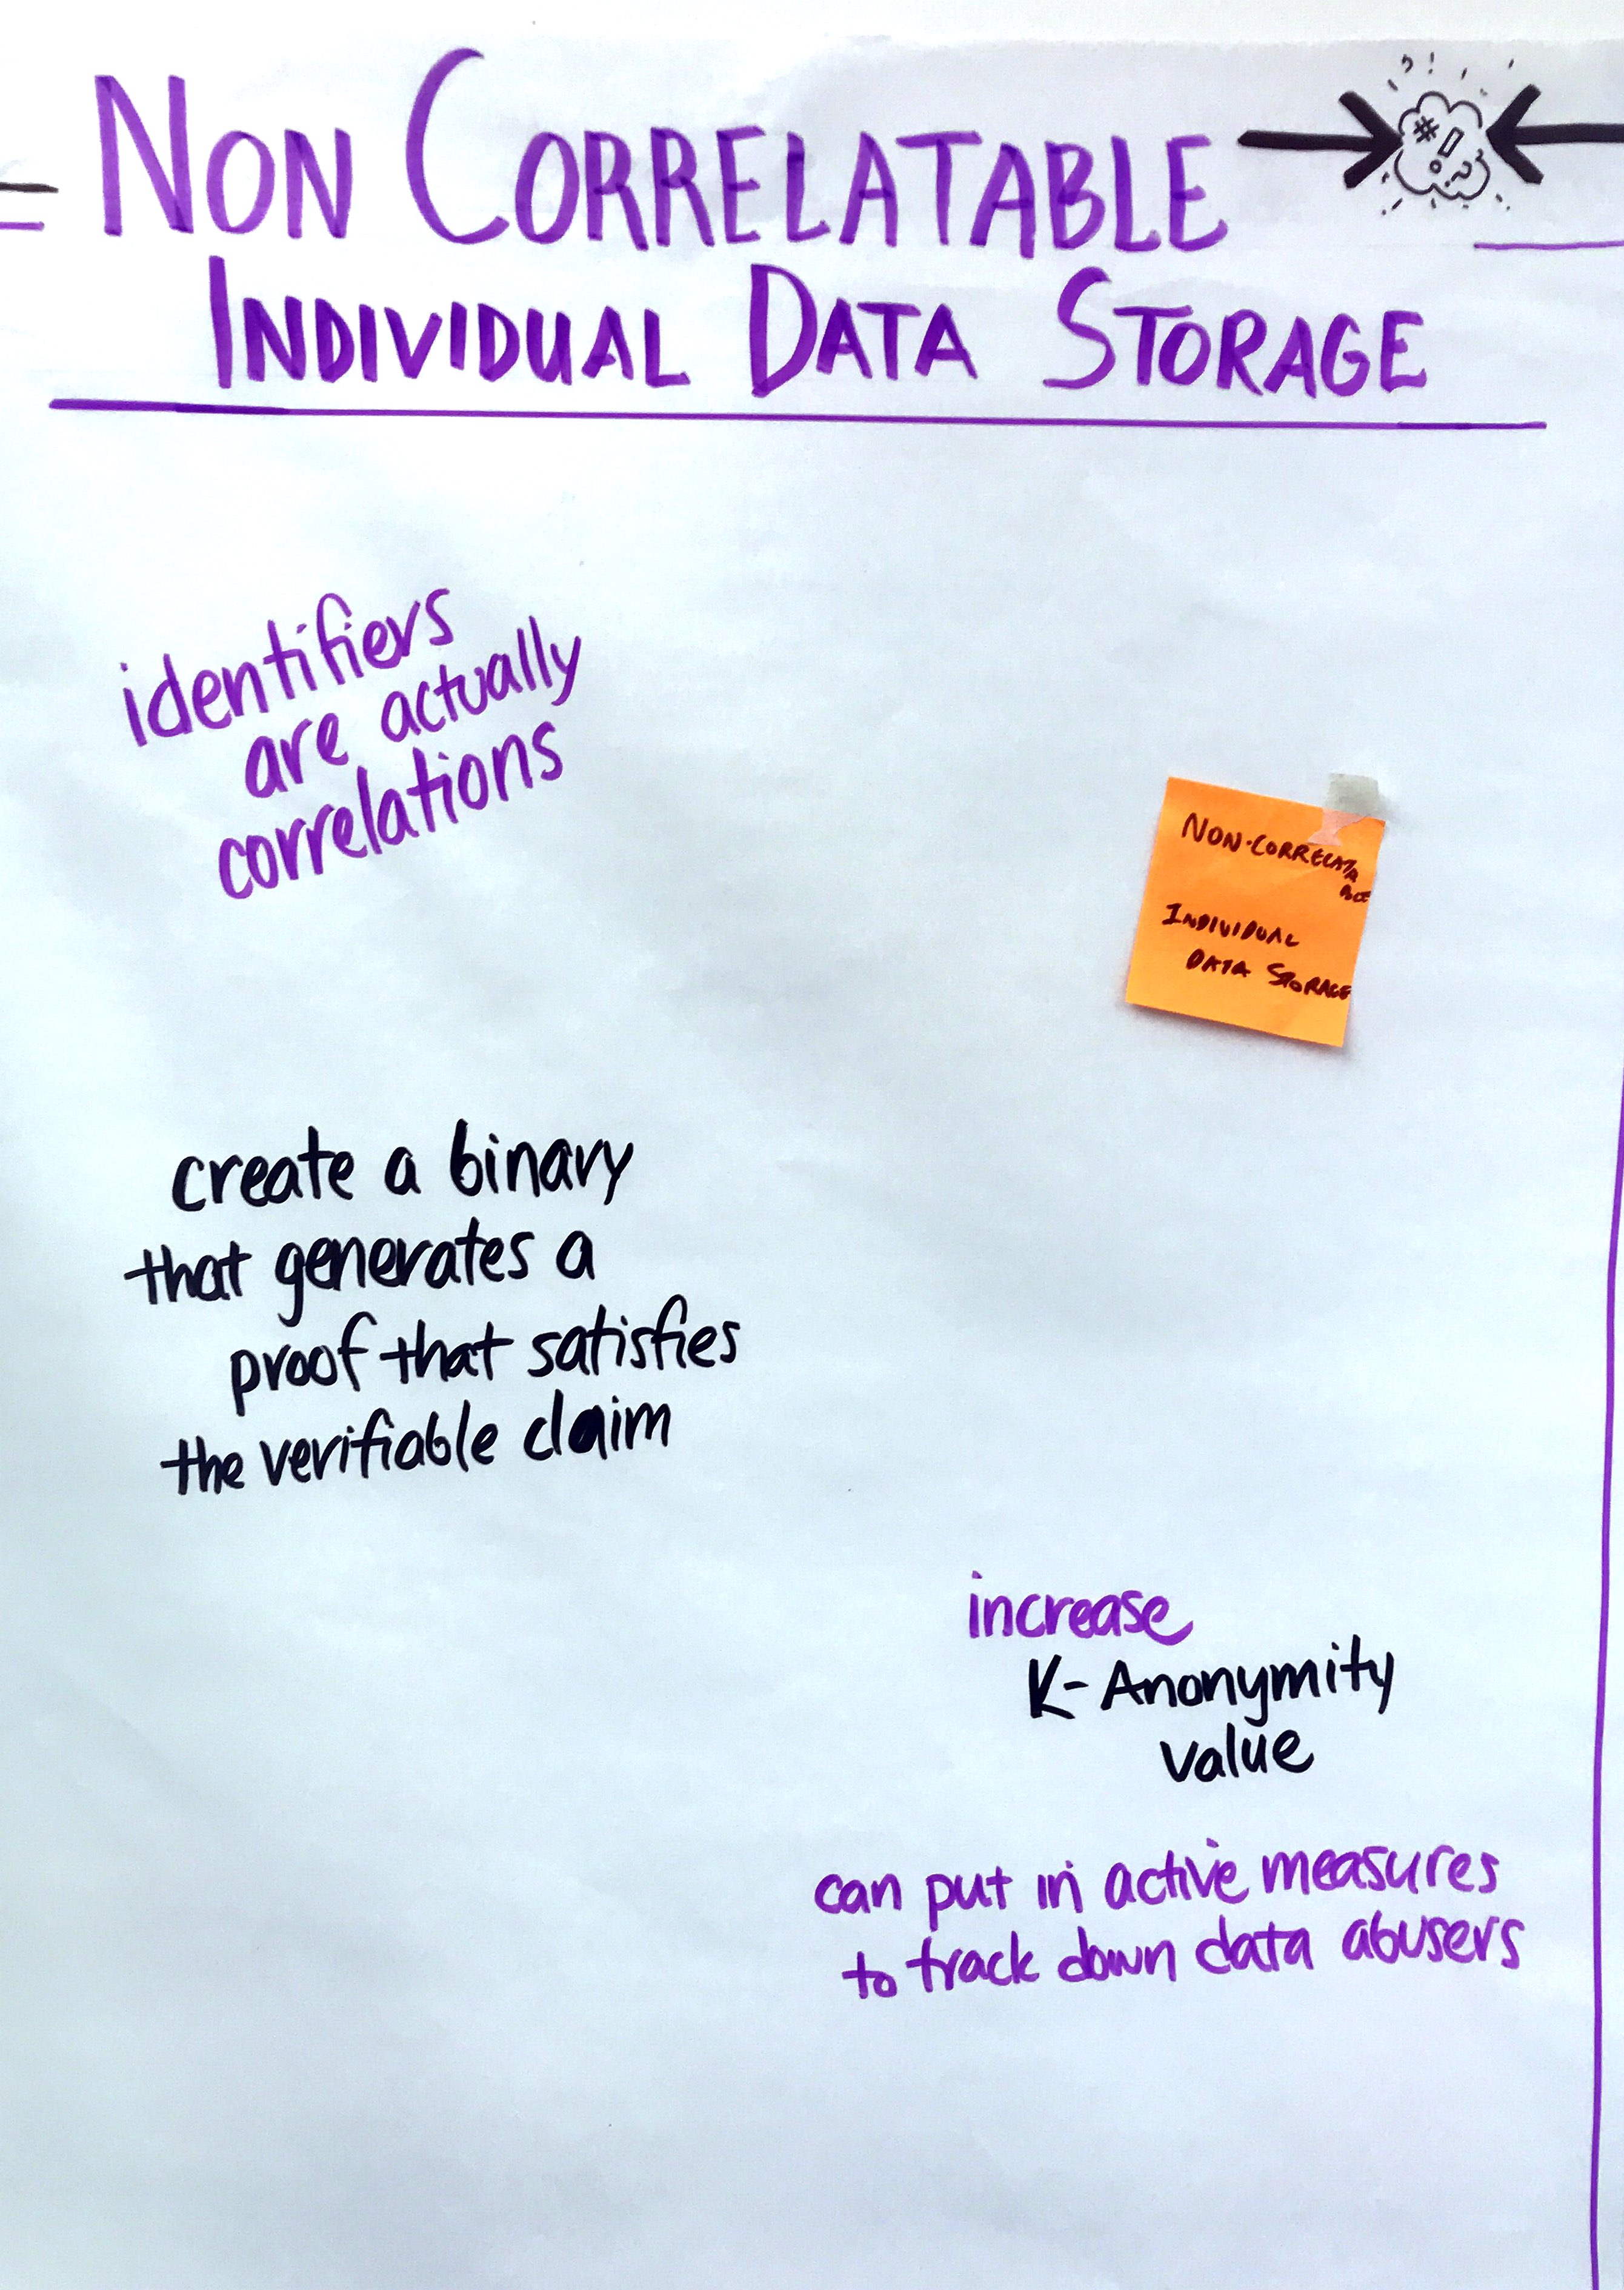 NON CORRELATABLE
INDIVIDUAL DATA STORAGE
identifiers
are actually
correlations
NON-CORRELATA
BLE
INDIVIDUAL
DATA STORAGE
create a binary
that generates a
proof that satisfies
the verifiable claim
increase
K-Anonymity
value
can put in active measures
to track down data abusers